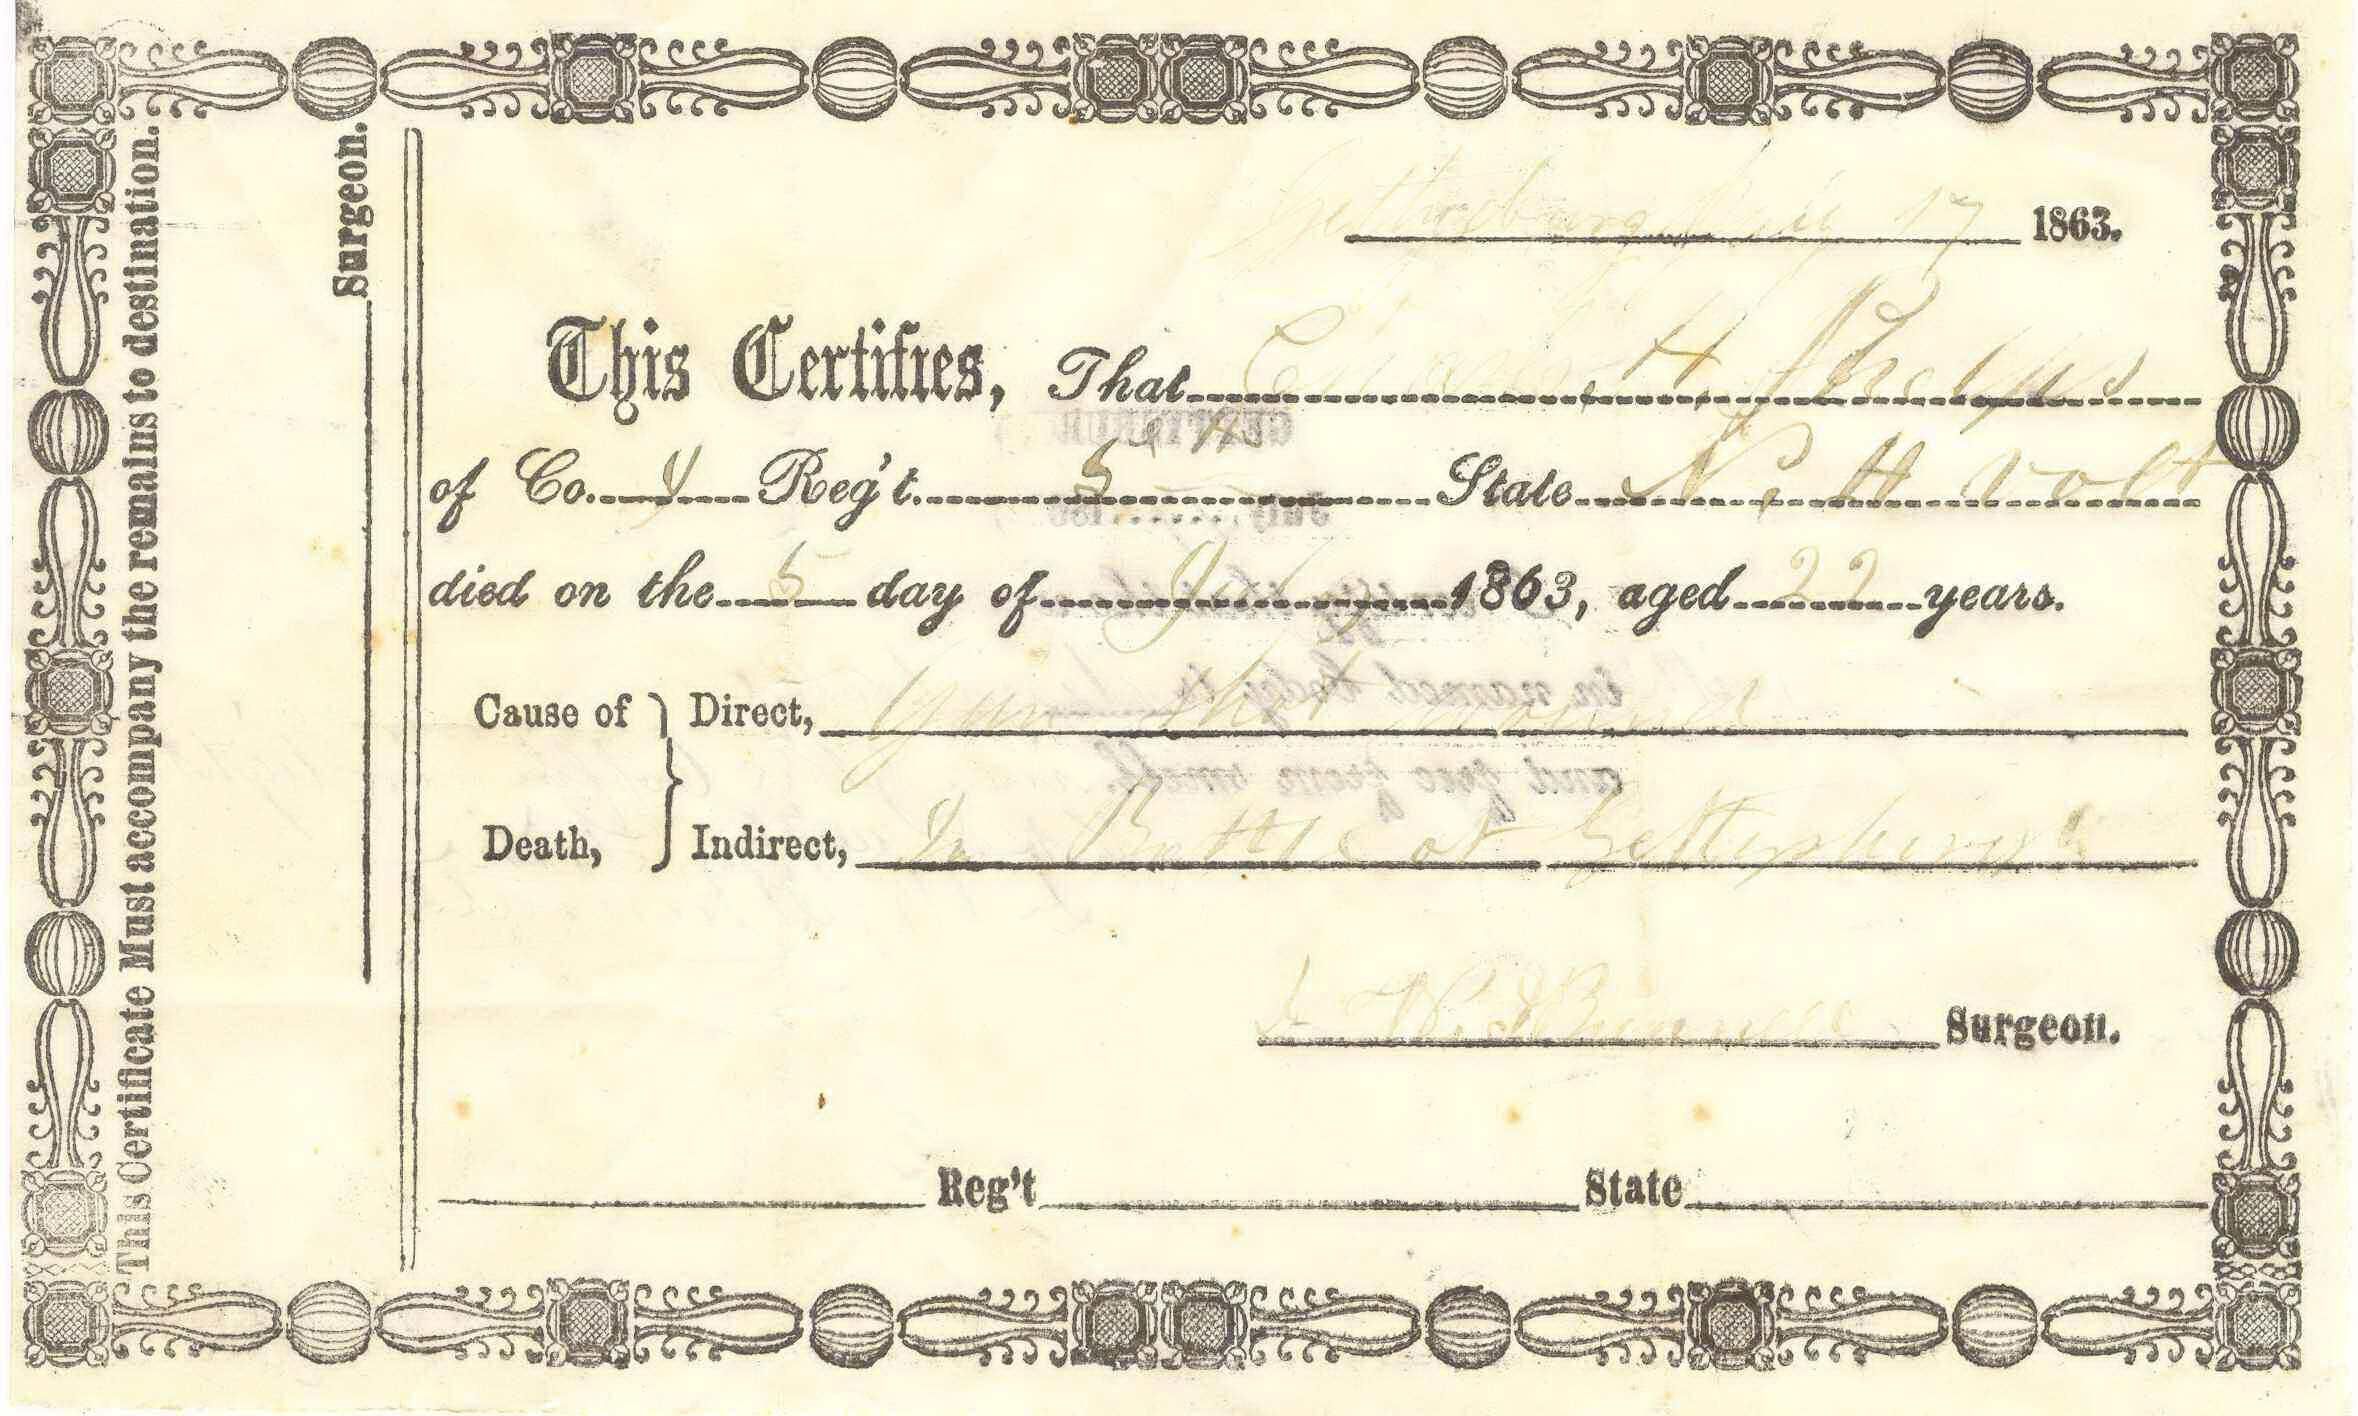 Gettysburg July 17 1863.
This Certifies, That H. Phelps
of Co. Reg't. 5th State N. H. volt
died on the 5 day of July 1863, aged 22 years.
Cause of Death, } Direct, Gun shot wound
Indirect, In Battle at Gettysburg
Surgeon.
Reg't State
Surgeon.
This Certificate Must accompany the remains to destination.